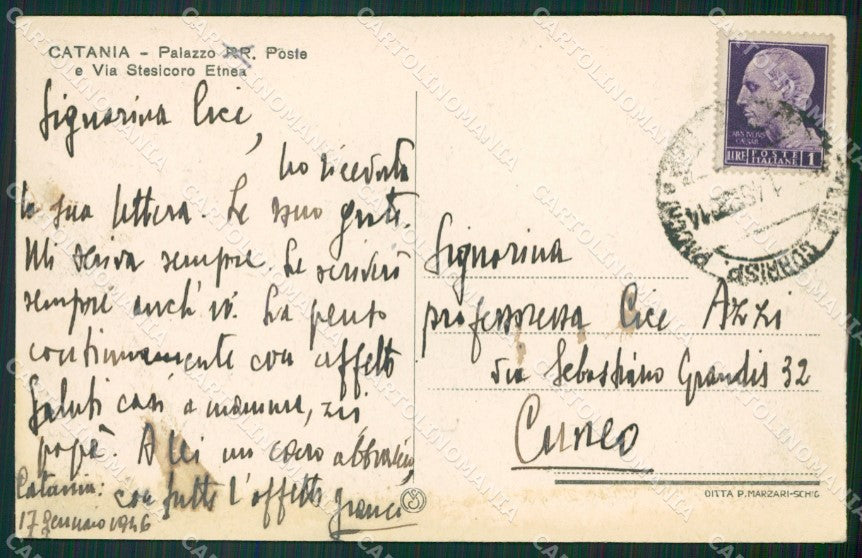 CATANIA – Palazzo RR. Poste
e Via Stesicoro Etnea
Signorina Cice,
ho ricevuta
la sua lettera. Le sono grato.
Mi scriva sempre. Le scriverò
sempre anch'io. La penso
continuamente con affetto
Saluti cari a mamma, zii
papà. A lei un caro abbraccio
con tutto l'affetto
Catania:
17 gennaio 1946
POSTE
ITALIANE
LIRE 1
Signorina
professoressa Cice Azzi
via Sebastiano Grandis 32
Cuneo
DITTA P. MARZARI-SCHIO
CARTOLINOMANIA